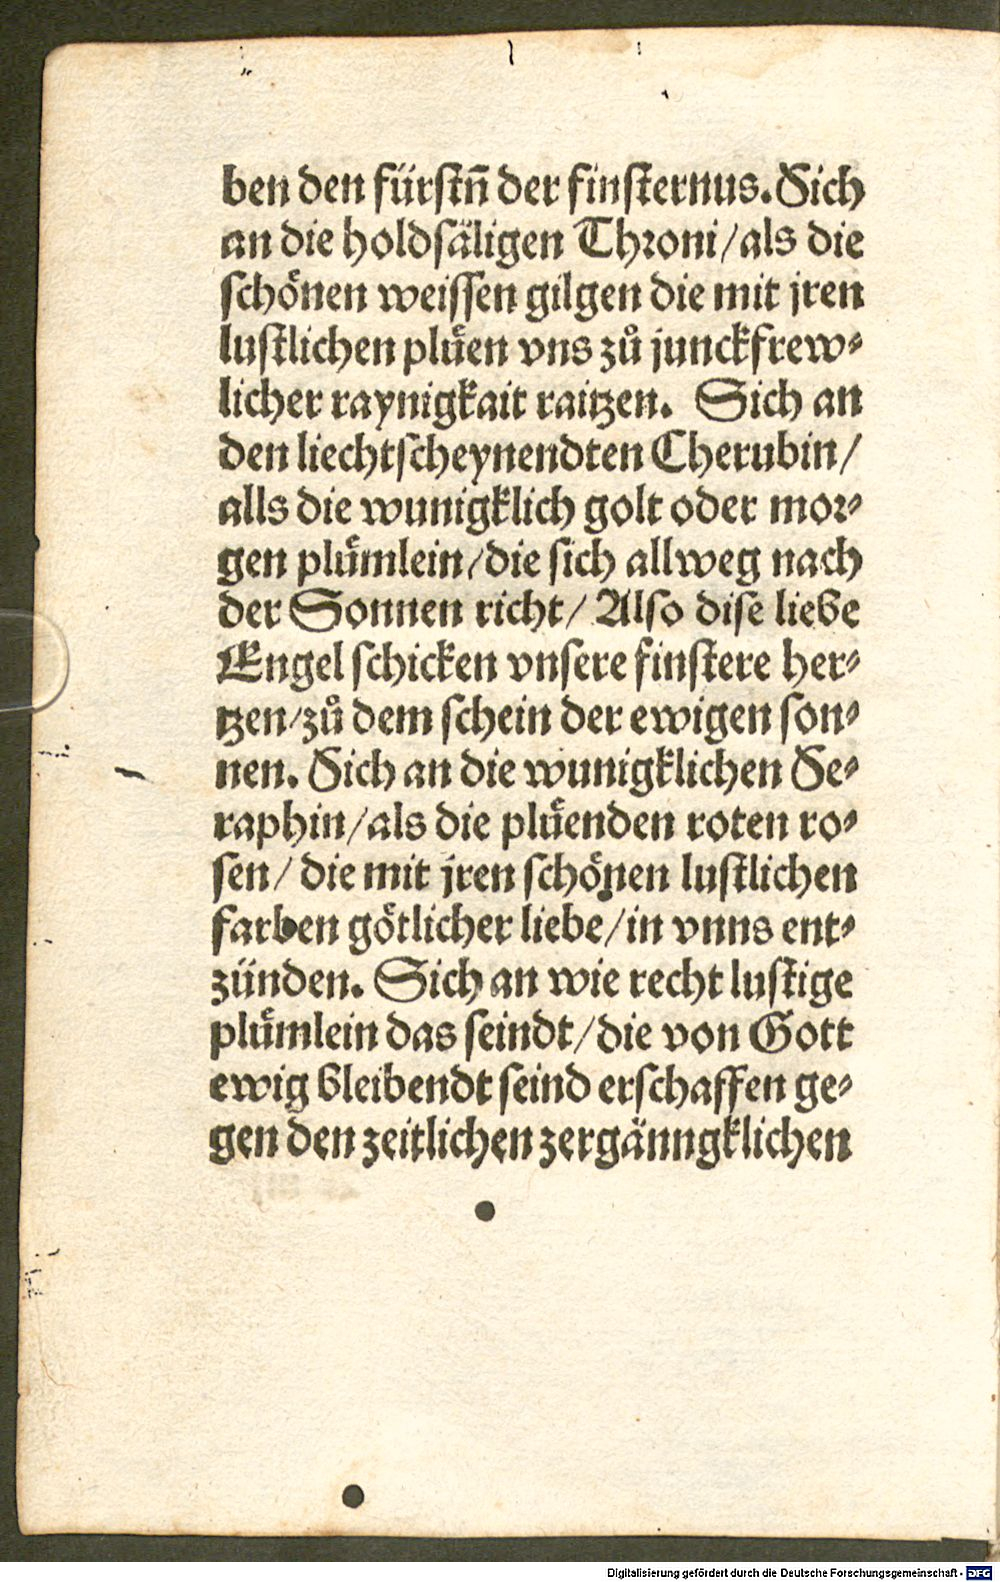 ben den fürstn̄ der finsternus. Sich
an die holdsäligen Throni/als die
schönen weissen gilgen die mit jren
lustlichen plüen vns zů junckfrew⸗
licher raynigkait raitzen. Sich an
den liechtscheynendten Cherubin/
alls die wunigklich golt oder mor⸗
gen plümlein/die sich allweg nach
der Sonnen richt/ Also dise liebe
Engel schicken vnsere finstere her⸗
tzen/zů dem schein der ewigen son⸗
nen. Sich an die wunigklichen Se⸗
raphin/als die plüenden roten ro⸗
sen/ die mit jren schönen lustlichen
farben götlicher liebe/in vnns ent⸗
zünden. Sich an wie recht lustige
plümlein das seindt/die von Gott
ewig bleibendt seind erschaffen ge⸗
gen den zeitlichen zergänngklichen
Digitalisierung gefördert durch die Deutsche Forschungsgemeinschaft - DFG